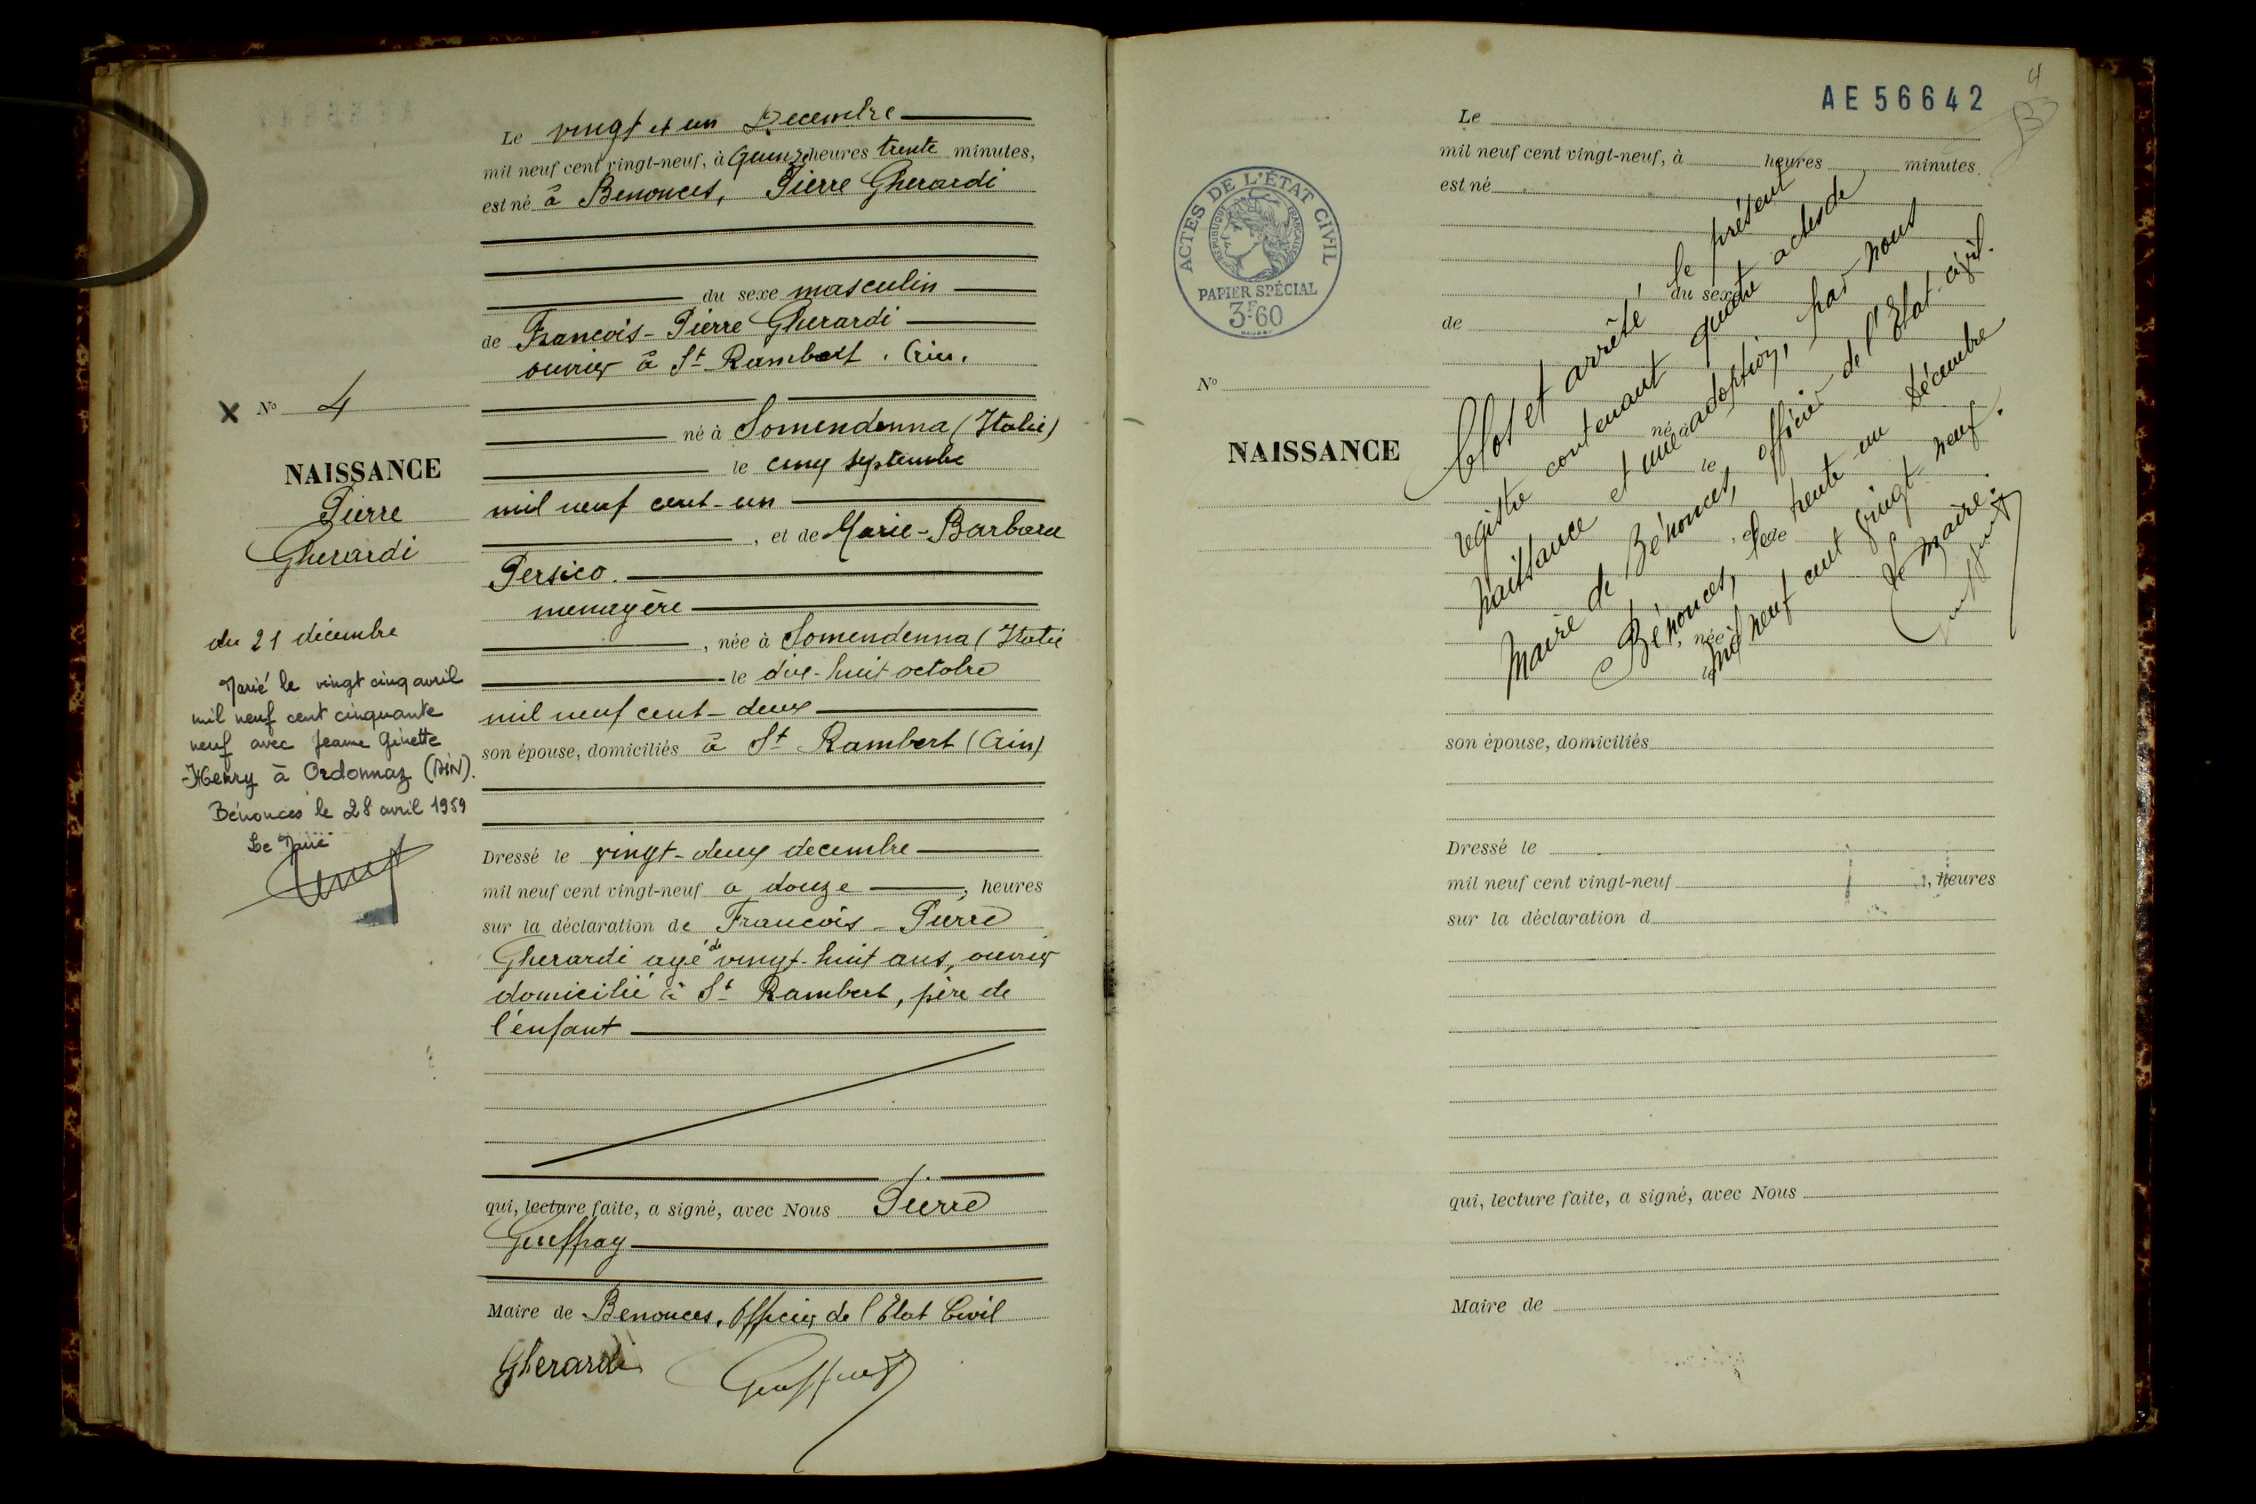 Le vingt et un Decembre
mil neuf cent vingt-neuf, à Quinze heures trente minutes,
est né à Benonces, Pierre Gherardi
du sexe masculin
de François-Pierre Gherardi
ouvrier à St Rambert. Ain.
né à Somendenna (Italie)
le cinq septembre
mil neuf cent-un
, et de Marie-Barbara
Persico.
menagère
, née à Somendenna (Italie
le dix-huit octobre
mil neuf cent-deux
son épouse, domiciliés à St Rambert (Ain)
Dressé le vingt-deux decembre
mil neuf cent vingt-neuf a douze, heures
sur la déclaration de Francois-Pierre
Gherardi agé de vingt-huit ans, ouvrier
domicilié à St Rambert, père de
l'enfant
qui, lecture faite, a signé, avec Nous Pierre
Geuffray
Maire de Benonces, Officier de l'Etat Civil
Gherardi
X No 4
NAISSANCE
Pierre
Gherardi
du 21 décembre
Marié le vingt cinq avril
mil neuf cent cinquante
neuf avec Jeanne Ginette
Henry à Ordonnaz (AIN).
Bénonces le 28 avril 1959
Le Maire
4
AE 56642
ACTES DE L'ÉTAT CIVIL
RÉPUBLIQUE FRANÇAISE
PAPIER SPÉCIAL
3F60
No
NAISSANCE
Le
mil neuf cent vingt-neuf, à heures minutes
est né
du sexe
de
né à
le
, et de
, née à
le
son épouse, domiciliés
Dressé le
mil neuf cent vingt-neuf , heures
sur la déclaration d
qui, lecture faite, a signé, avec Nous
Maire de
Clos et arrêté le présent
registre contenant quatre actes de
naissance et une adoption, par nous
Maire de Bénonces, officier de l'Etat-civil.
Bénonces, le trente un Décembre
mil neuf cent vingt-neuf.
Le Maire.